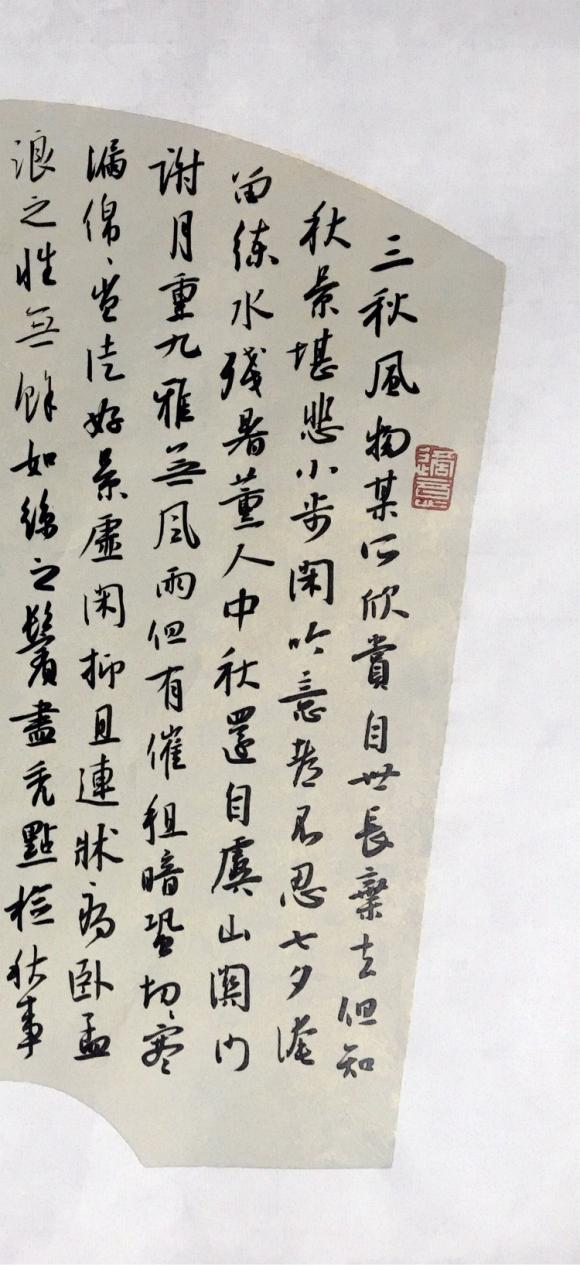 三秋風物某所欣賞自世長棄去但知
秋景堪悲小步閑吟意都不忍七夕淹
留練水殘暑薰人中秋還自虞山闔門
謝月重九雅無風雨但有催租暗蛩切切寒
漏綿綿豈徒好景虛閑抑且連牀病臥孟
浪之性無餘如絲之鬢盡禿點檢秋事